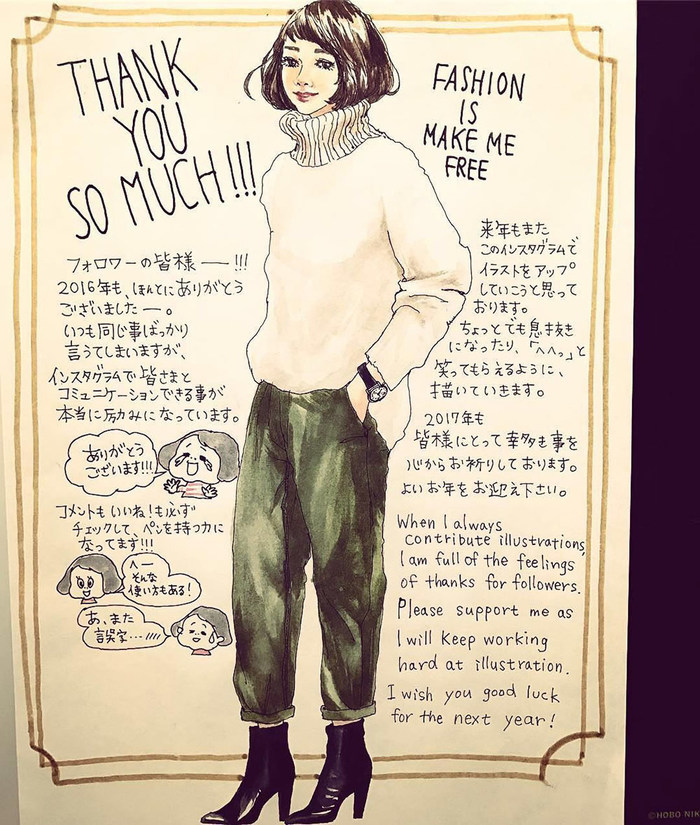 THANK
YOU
SO MUCH!!!
FASHION
IS
MAKE ME
FREE
フォロワーの皆様ー!!!
2016年も、ほんとにありがとう
ございましたー。
いつも同じ事ばっかり
言うてしまいますが、
インスタグラムで皆さまと
コミュニケーションできる事が
本当に励みになっています。
ありがとう
ございます!!!
コメントもいいね!も必ず
チェックして、ペンを持つ力に
なってます!!!
へー
そんな
使い方もある!
あ、また
誤字…!!!!
来年もまた
このインスタグラムで
イラストをアップ
していこうと思って
おります。
ちょっとでも息抜き
になったり、「へへっ」と
笑ってもらえるように、
描いていきます。
2017年も
皆様にとって幸多き事を
心からお祈りしております。
よいお年をお迎え下さい。
When I always
contribute illustrations,
I am full of the feelings
of thanks for followers.
Please support me as
I will keep working
hard at illustration.
I wish you good luck
for the next year!
©HOBO NIK